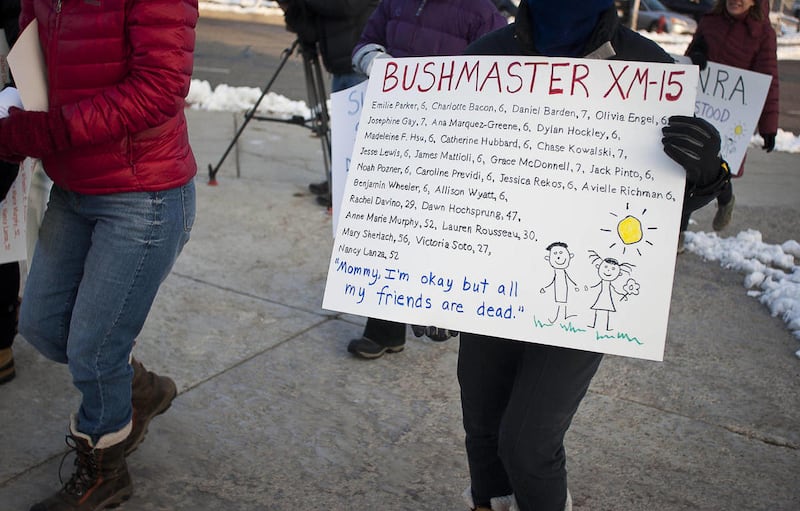 BUSHMASTER XM-15
Emilie Parker, 6, Charlotte Bacon, 6, Daniel Barden, 7, Olivia Engel, 6,
Josephine Gay, 7, Ana Marquez-Greene, 6, Dylan Hockley, 6,
Madeleine F. Hsu, 6, Catherine Hubbard, 6, Chase Kowalski, 7,
Jesse Lewis, 6, James Mattioli, 6, Grace McDonnell, 7, Jack Pinto, 6,
Noah Pozner, 6, Caroline Previdi, 6, Jessica Rekos, 6, Avielle Richman 6,
Benjamin Wheeler, 6, Allison Wyatt, 6,
Rachel Davino, 29, Dawn Hochsprung, 47,
Anne Marie Murphy, 52, Lauren Rousseau, 30.
Mary Sherlach, 56, Victoria Soto, 27,
Nancy Lanza, 52
"Mommy, I'm okay but all
my friends are dead."
NRA.
STOOD